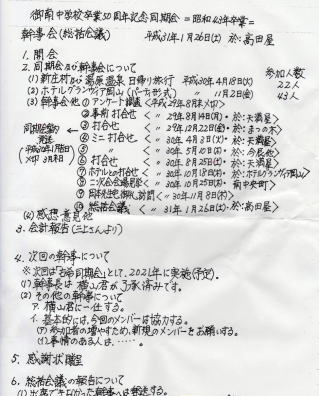 御南中学校卒業50周年記念同期会 =昭和43年卒業=
幹事会(総括会議) 平成31年1月26日(土) 於:高田屋
1. 開会
2. 同期会及び幹事会について 参加人数
(1) 新庄村及び湯原温泉日帰り旅行 平成30年4月18日(水) 22人
(2) ホテルグランヴィア岡山(パーティ形式) 〃 11月2日(金) 43人
(3) 幹事会他 ①アンケート調査<平成29年8月末〆切>
② 事前打合せ <〃29年8月14日(月)・於:天満屋>
同期会だより発送 ③ 打合せ <〃29年12月22日(金)・於:まつの木>
(平成30年1月15日) ④ ミニ打合せ <〃30年4月3日(火)・於:天満屋>
〆切 3月末 ⑤ 〃 <〃30年5月10日(木)・於:
⑥ 打合せ <〃30年8月25日(土)・於:天満屋>
⑦ ホテルとの打合せ <〃30年10月18日(木)・於:ホテルグランヴィア岡山>
⑧ 二次会会場見学 <〃30年10月25日(木)・於:田中央町>
⑨ 御訪問 <〃30年11月8日(木)>
⑩ 総括会議 <〃31年1月26日(土)・於:高田屋>
(4) 感想・意見他
3. 会計報告(三上さんより)
4. 次回の幹事について
※次回は「古希同期会」として、2021年に実施(予定)。
(1) 幹事長は横山君が了承済みです。
(2) その他の幹事について
ア. 横山君に一任する。
イ. 基本的には、今回のメンバーは協力する。
(ア) 参加者の増やすため、新規のメンバーをお願いする。
(イ) 事情のある人は、……。
5. 感謝状贈呈
6. 総括会議の報告について
(1) 出席できなかった幹事へは発送する。